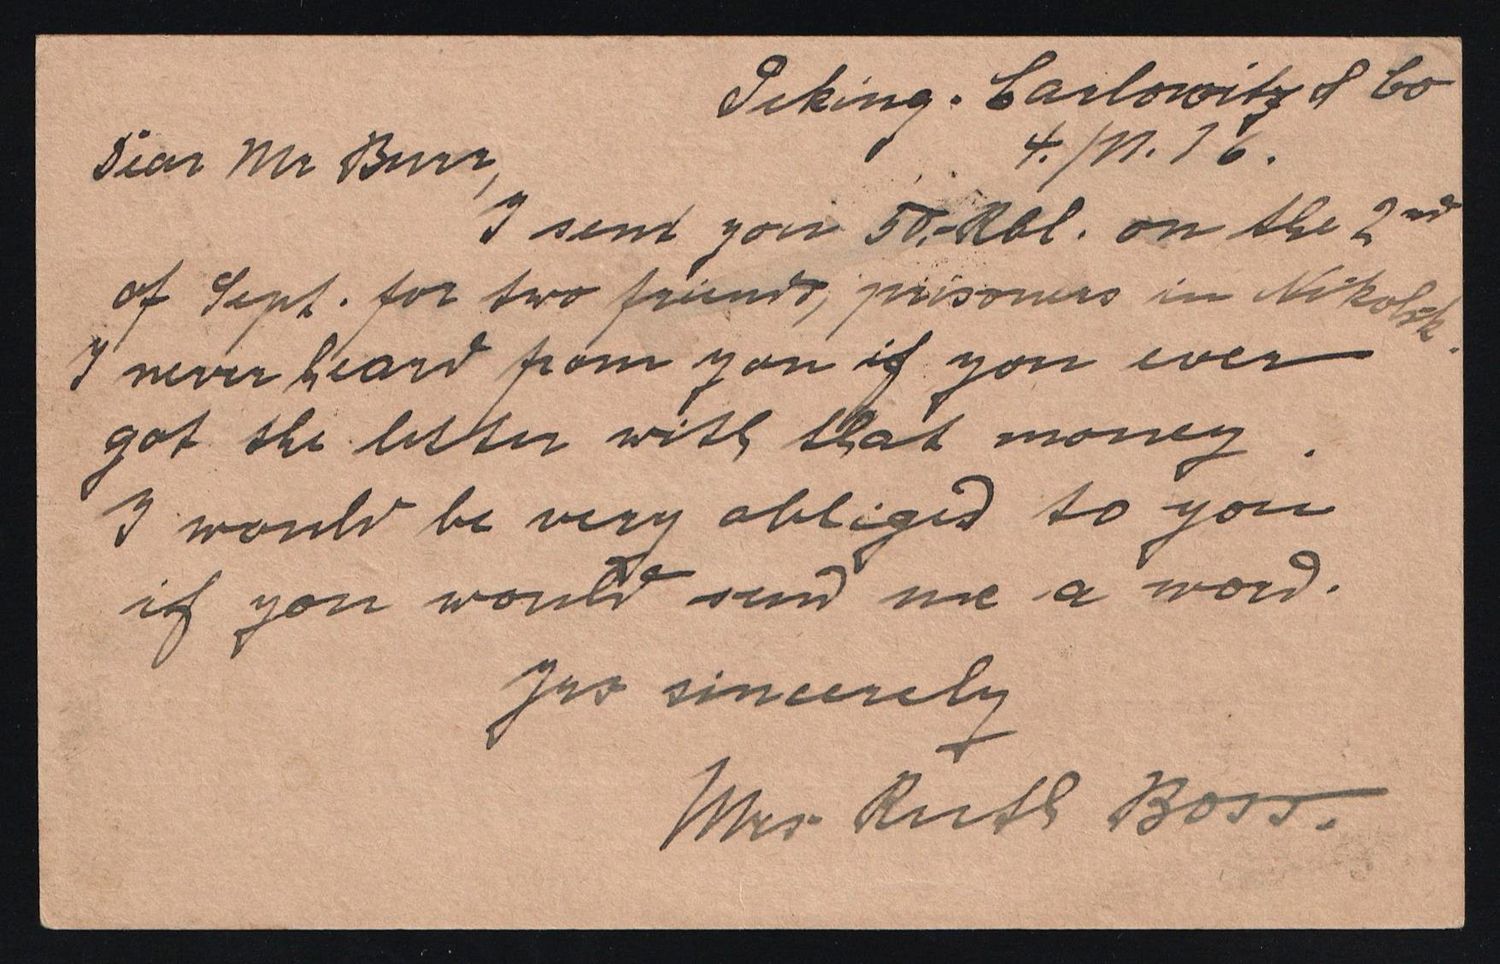 Peking. Carlowitz & Co
4./11. 16.
Dear Mr Burr,
I send you 50.- Rbl. on the 2nd
of Sept. for two friends, prisoners in Nikolsk.
I never heard from you if you ever
got the letter with that money.
I would be very obliged to you
if you would send me a word.
Yrs sincerely
Mrs Ruth Boss.